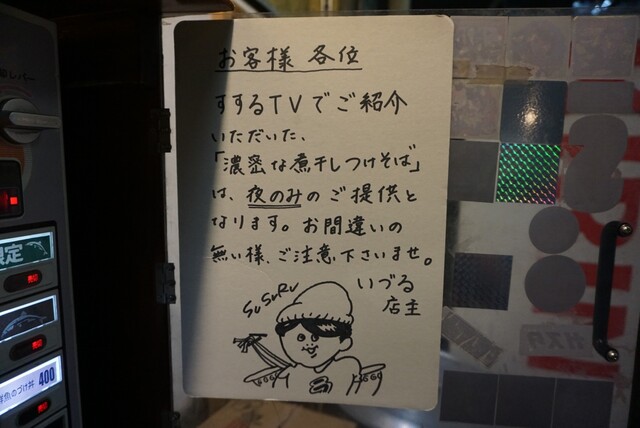 お客様 各位
すするTVでご紹介
いただいた、
「濃密な煮干しつけそば」
は、夜のみのご提供と
なります。お間違いの
無い様、ご注意下さいませ。
いづる
店主
SUSURU
レバー
限定
鮮魚のづけ丼 400